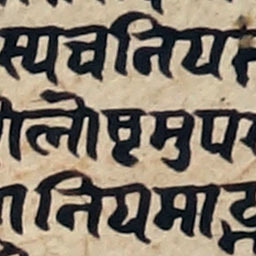 स्यचनियम
लोष्टमुप
नियमाद्